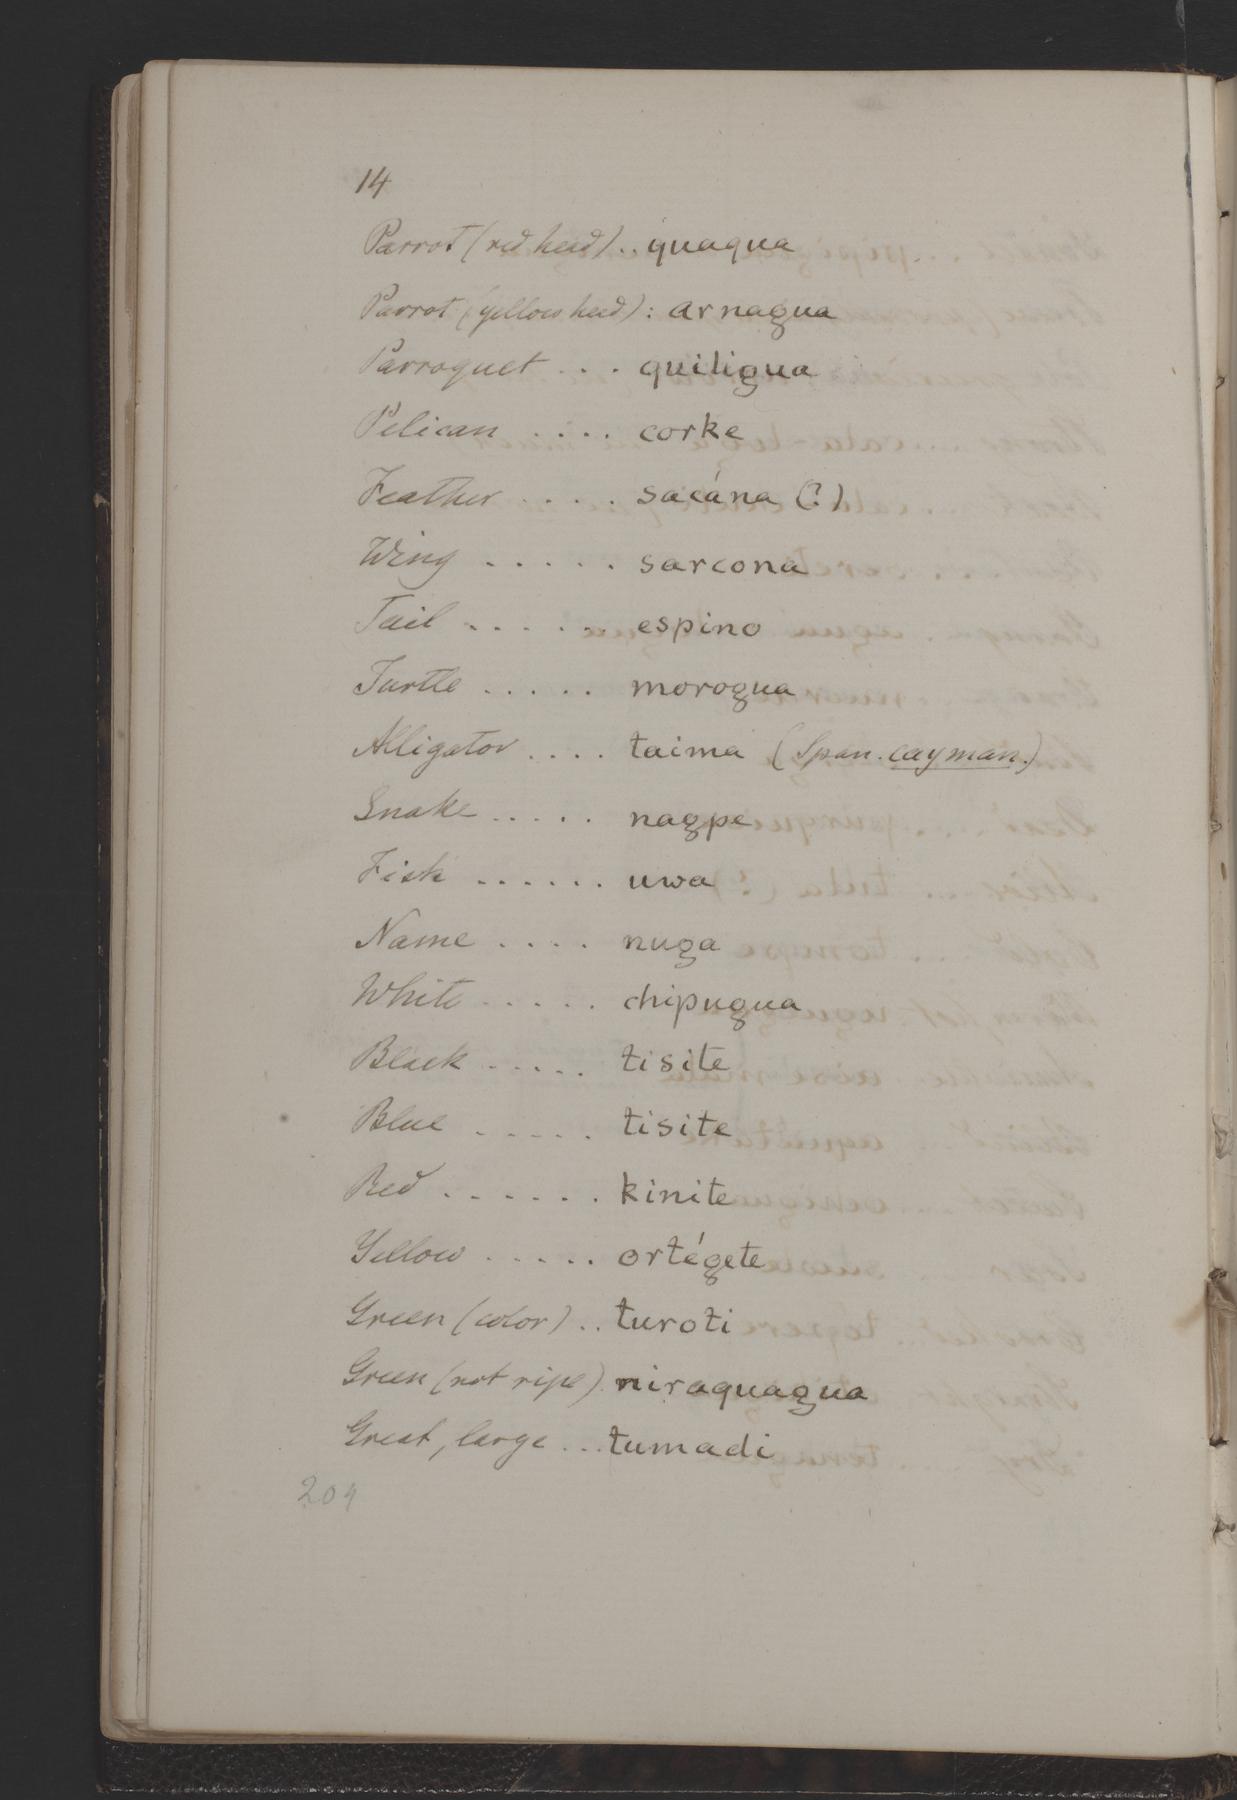 14
Parrot (red head) .. quaqua
Parrot (yellow head) : arnagua
Parroquet . . . quiligua
Pelican . . . . corke
Feather . . . . sacána (?)
Wing . . . . . sarcona
Tail . . . . . espino
Turtle . . . . . morogua
Alligator . . . . taima (Span. cayman.)
Snake . . . . . nagpe
Fish . . . . . . uwa
Name . . . . nuga
White . . . . . chipugua
Black . . . . . tisite
Blue . . . . . tisite
Red . . . . . . kinite
Yellow . . . . . ortégete
Green (color) . . turoti
Green (not ripe) . niraquagua
Great, large . . . tumadi
209